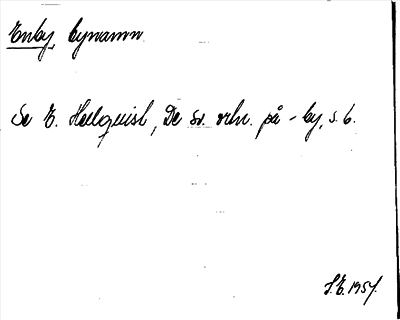 Enby, bynamn
Se E. Hellquist, De sv. ortn. på -by, s. 6.
S.E. 1957.